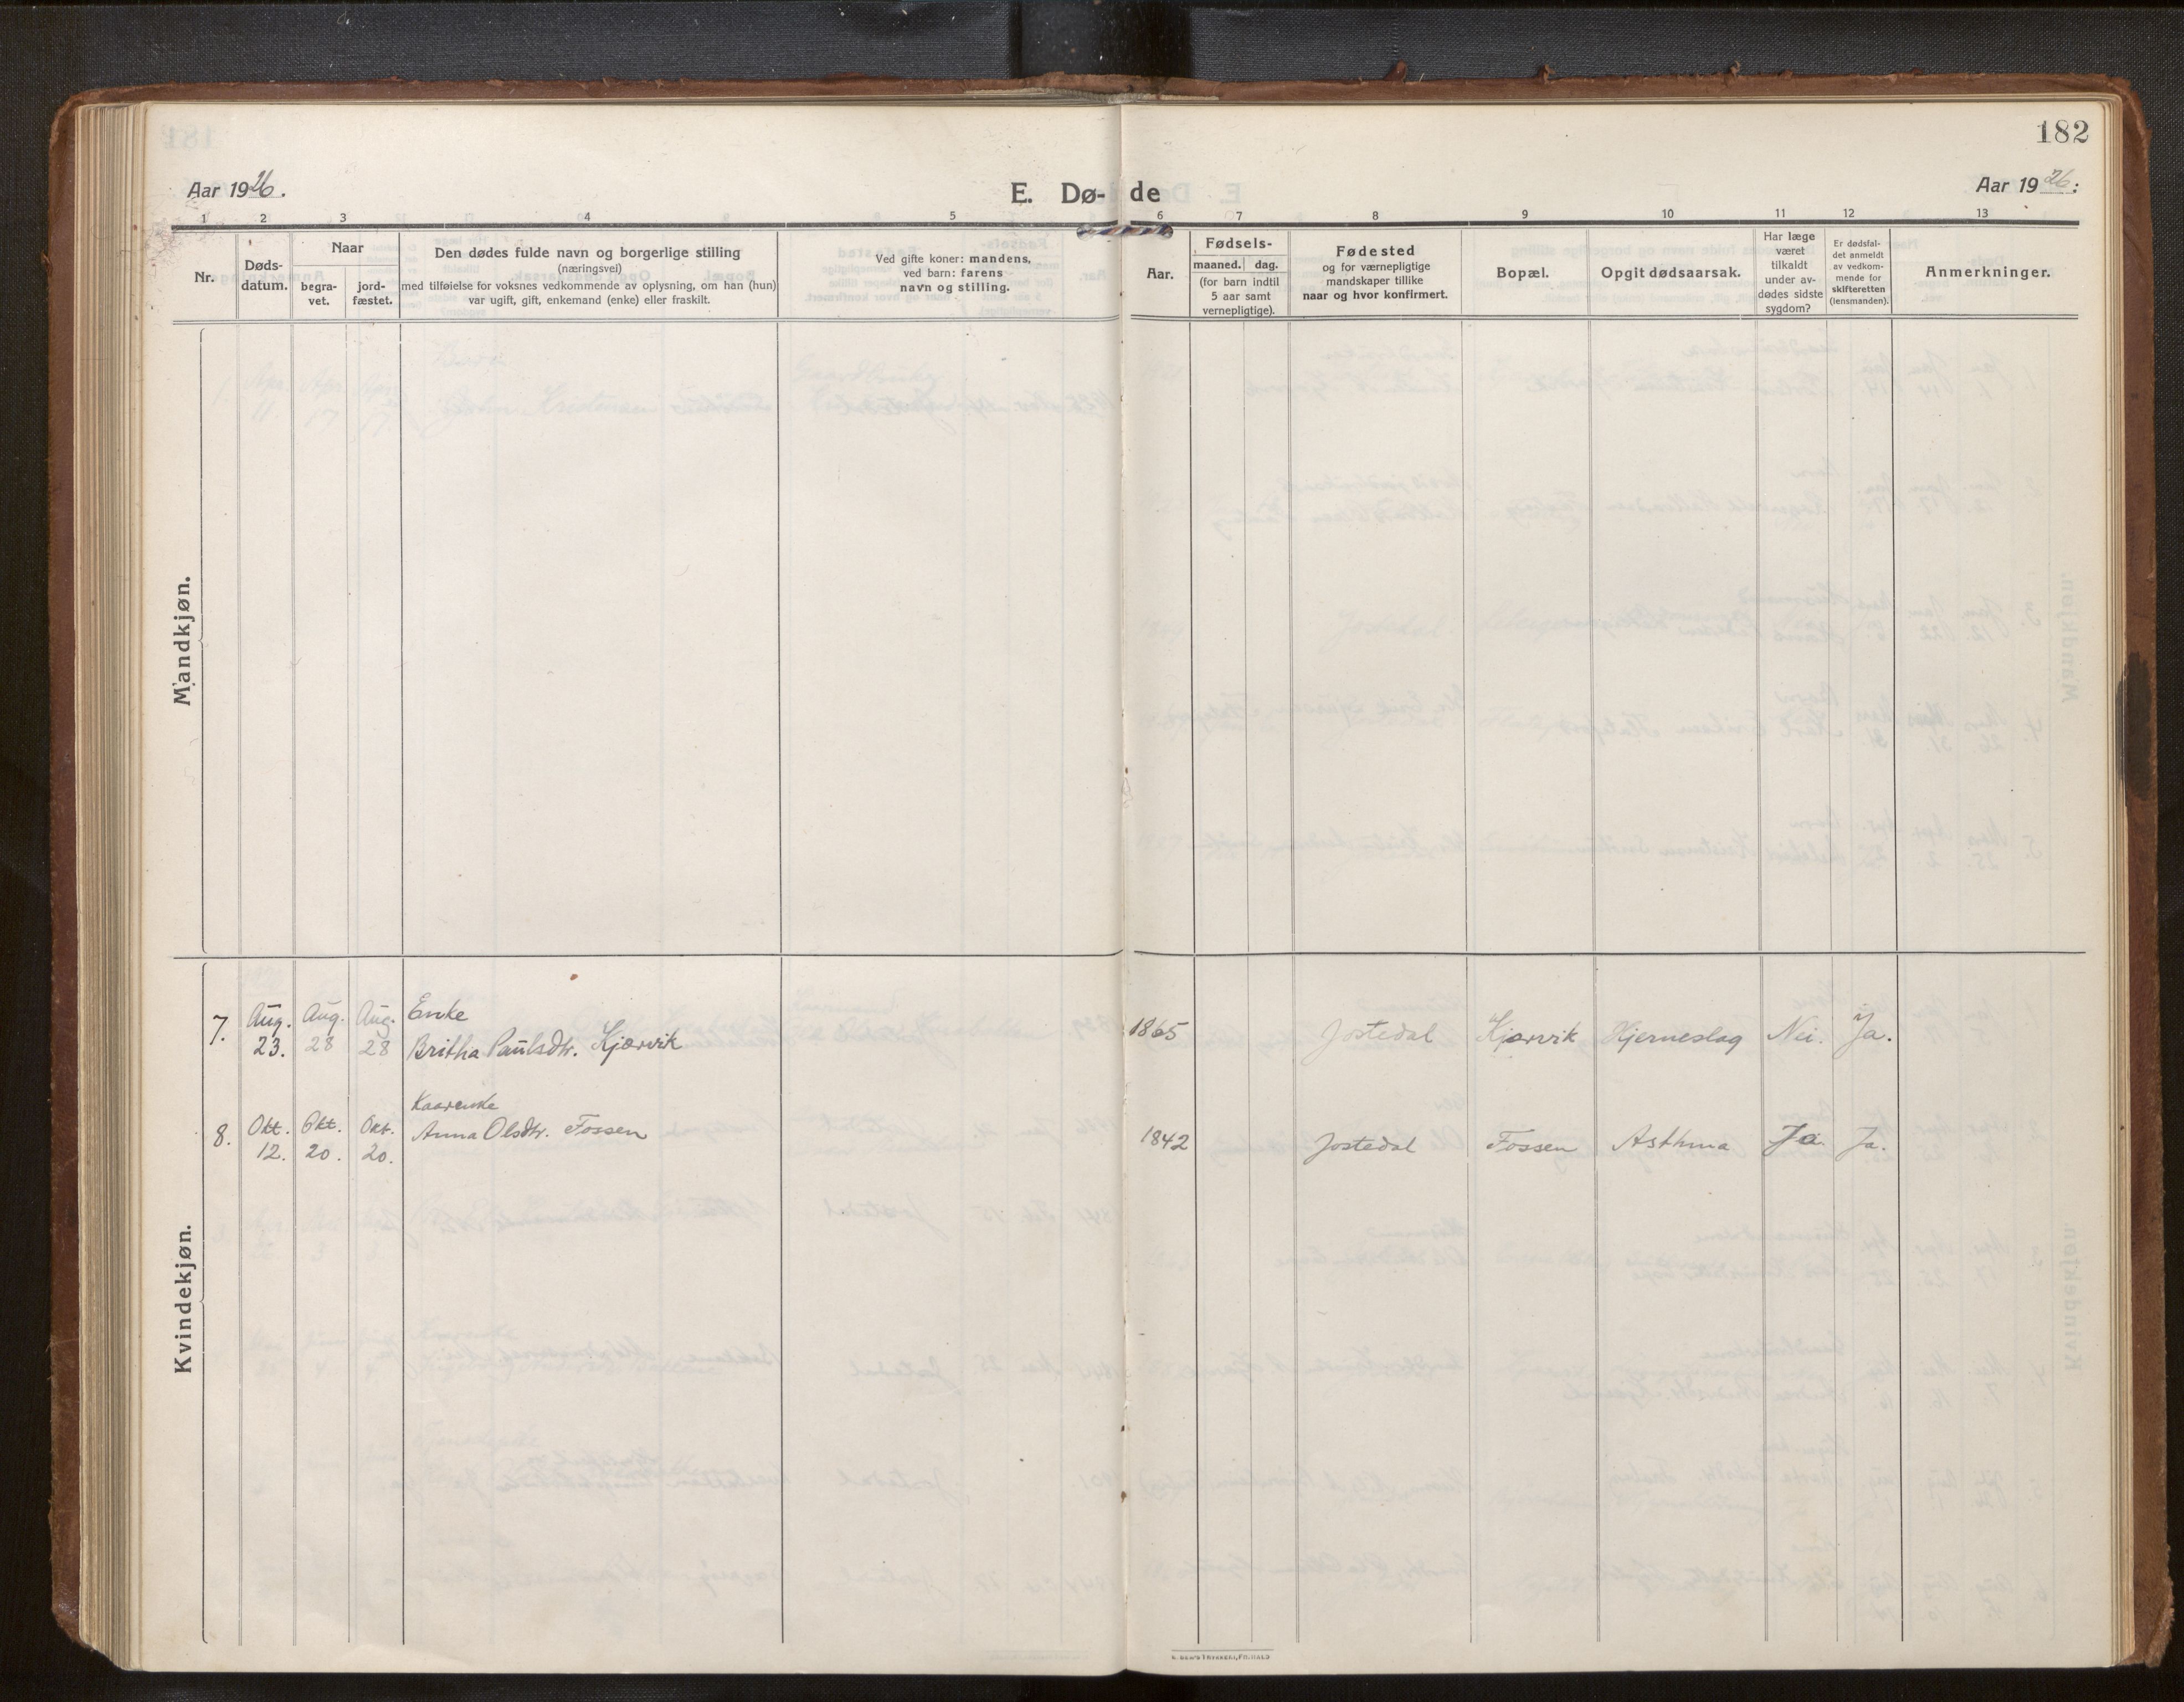 182
Aar 1926.
E. Dø-
de
Aar 1926:
1 2 3 4 5 6 7 8 9 10 11 12 13
Nr.
Døds-
datum.
Naar
begra-
vet.
jord-
fæstet.
Den dødes fulde navn og borgerlige stilling
(næringsvei)
med tilføielse for voksnes vedkommende av oplysning, om han (hun)
var ugift, gift, enkemand (enke) eller fraskilt.
Ved gifte koner: mandens,
ved barn: farens
navn og stilling.
Aar.
Fødsels-
maaned. dag.
(for barn indtil
5 aar samt
vernepligtige).
Fødested
og for værnepligtige
mandskaper tillike
naar og hvor konfirmert.
Bopæl.
Opgit dødsaarsak.
Har læge
været
tilkaldt
under av-
dødes sidste
sygdom?
Er dødsfal-
det anmeldt
av vedkom-
mende for
skifteretten
(lensmanden).
Anmerkninger.
Mandkjøn.
Kvindekjøn.
7. Aug. Aug. Aug. Enke
23. 28 28 Britha Paulsdtr. Kjørvik 1865 Jostedal Kjørvik Hjerneslag Nei. Ja.
Kaarenke
8. Okt. Okt. Okt. Anna Olsdtr. Fossen 1842 Jostedal Fossen Asthma Ja Ja.
12. 20. 20.